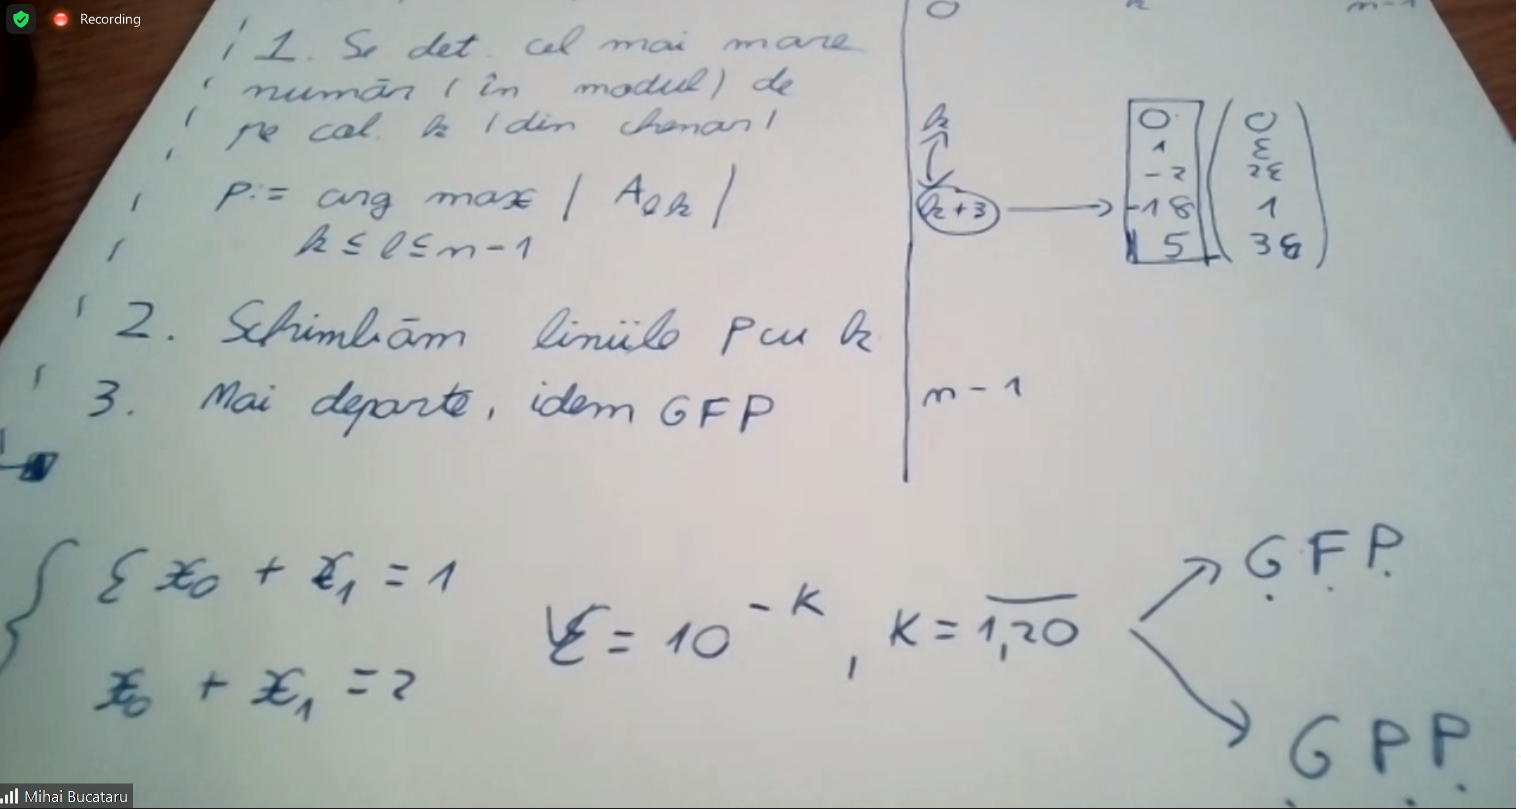 Recording
0 k n-1
1. Se det. cel mai mare
număr (în modul) de
pe col. k (din chenar)
p := arg max | Aℓk |
k ≤ ℓ ≤ n-1
2. Schimbăm liniile p cu k
3. Mai departe, idem GFP
k
k+3
n-1
0 0
1 ε
-2 2ε
-18 1
5 3ε
εx0 + x1 = 1
x0 + x1 = 2
∀ε = 10^-K, K = 1,20
GFP
GPP
Mihai Bucataru